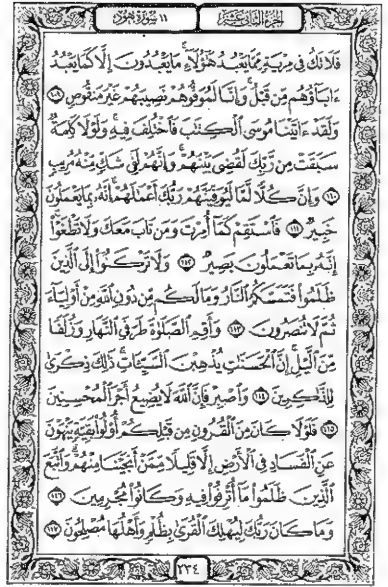 الجزء الثاني عشر
١١ سورة هود
فَلَا تَكُ فِي مِرْيَةٍ مِّمَّا يَعْبُدُ هَٰٓؤُلَآءِ ۚ مَا يَعْبُدُونَ إِلَّا كَمَا يَعْبُدُ
ءَابَآؤُهُم مِّن قَبْلُ ۚ وَإِنَّا لَمُوَفُّوهُمْ نَصِيبَهُمْ غَيْرَ مَنقُوصٍ ١٠٩
وَلَقَدْ ءَاتَيْنَا مُوسَى ٱلْكِتَٰبَ فَٱخْتُلِفَ فِيهِ ۚ وَلَوْلَا كَلِمَةٌ
سَبَقَتْ مِن رَّبِّكَ لَقُضِيَ بَيْنَهُمْ ۚ وَإِنَّهُمْ لَفِي شَكٍّ مِّنْهُ مُرِيبٍ
١١٠ وَإِنَّ كُلًّا لَّمَّا لَيُوَفِّيَنَّهُمْ رَبُّكَ أَعْمَٰلَهُمْ ۚ إِنَّهُۥ بِمَا يَعْمَلُونَ
خَبِيرٌ ١١١ فَٱسْتَقِمْ كَمَآ أُمِرْتَ وَمَن تَابَ مَعَكَ وَلَا تَطْغَوْا۟ ۚ
إِنَّهُۥ بِمَا تَعْمَلُونَ بَصِيرٌ ١١٢ وَلَا تَرْكَنُوٓا۟ إِلَى ٱلَّذِينَ
ظَلَمُوا۟ فَتَمَسَّكُمُ ٱلنَّارُ وَمَا لَكُم مِّن دُونِ ٱللَّهِ مِنْ أَوْلِيَآءَ
ثُمَّ لَا تُنصَرُونَ ١١٣ وَأَقِمِ ٱلصَّلَوٰةَ طَرَفَيِ ٱلنَّهَارِ وَزُلَفًا
مِّنَ ٱلَّيْلِ ۚ إِنَّ ٱلْحَسَنَٰتِ يُذْهِبْنَ ٱلسَّيِّـَٔاتِ ۚ ذَٰلِكَ ذِكْرَىٰ
لِلذَّٰكِرِينَ ١١٤ وَٱصْبِرْ فَإِنَّ ٱللَّهَ لَا يُضِيعُ أَجْرَ ٱلْمُحْسِنِينَ
١١٥ فَلَوْلَا كَانَ مِنَ ٱلْقُرُونِ مِن قَبْلِكُمْ أُو۟لُوا۟ بَقِيَّةٍ يَنْهَوْنَ
عَنِ ٱلْفَسَادِ فِي ٱلْأَرْضِ إِلَّا قَلِيلًا مِّمَّنْ أَنجَيْنَا مِنْهُمْ ۗ وَٱتَّبَعَ
ٱلَّذِينَ ظَلَمُوا۟ مَآ أُتْرِفُوا۟ فِيهِ وَكَانُوا۟ مُجْرِمِينَ ١١٦
وَمَا كَانَ رَبُّكَ لِيُهْلِكَ ٱلْقُرَىٰ بِظُلْمٍ وَأَهْلُهَا مُصْلِحُونَ ١١٧
٢٣٤